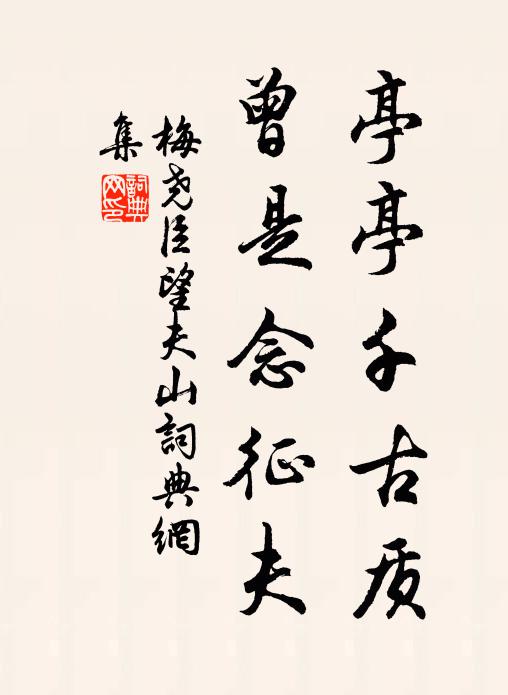 亭亭千古质
曾是念征夫
梅尧臣望夫山詞典網
集
詞典
网印